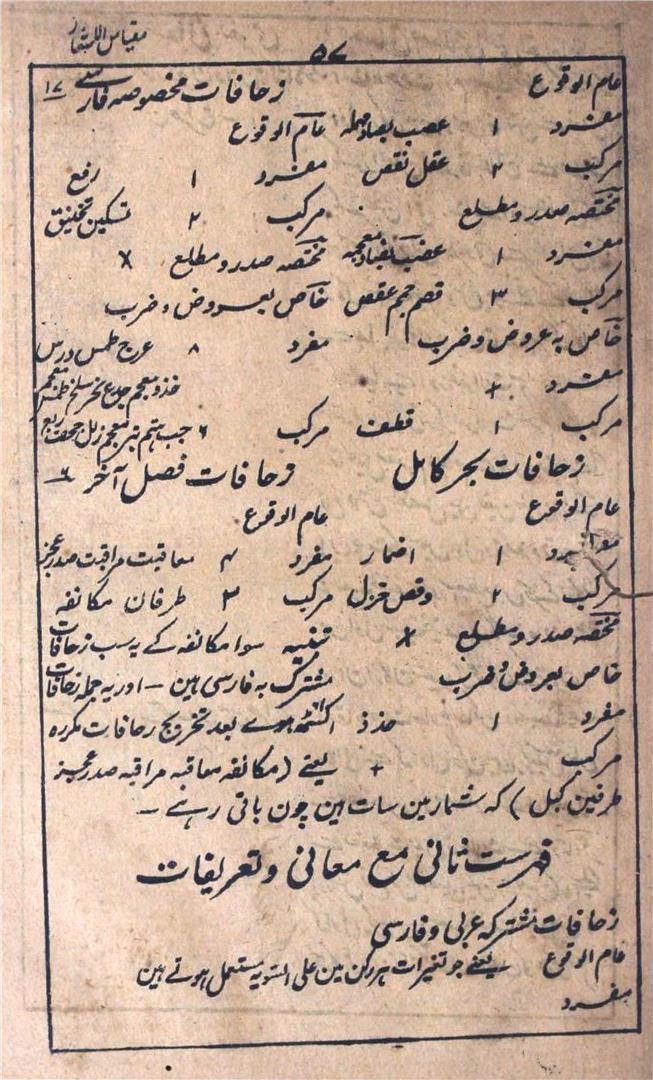 مقیاس الاشعار
۵۷
عام الوقوع زحافات مخصوصہ فارسی ۱۷
مفرد ۱ عصب بصاد مہملہ عام الوقوع
مرکب ۲ عقل نقص مفرد ۱ رفع
مختصہ صدر و مطلع مرکب ۲ تسکین تخنیق
مفرد ۱ عضب بضاد معجمہ مختصہ صدر و مطلع ×
مرکب ۳ قصم جمم عقص خاص بعروض و ضرب
خاص بہ عروض و ضرب مفرد ۸ عرج طمس درس
مفرد + جدع نحر سلخ
مرکب ۱ قطف مرکب ۶ جب ہتم بتر زلل جحف ربع
زحافات بحر کامل زحافات فصل آخر ۶
عام الوقوع عام الوقوع
مفرد ۱ اضمار مفرد ۴ معاقبت مراقبت صدر عجز
مرکب ۲ وقص خزل مرکب ۲ طرفان مکانفہ
مختصہ صدر و مطلع × تنبیہ سوا مکانفہ کے یہ سب زحافات
خاص بعروض و ضرب مشترک بہ فارسی ہین – اور یہ جملہ زحافات
مفرد ۱ حذذ بعد تخریج زحافات مکررہ
مرکب + یعنے (مکانفہ معاقبہ مراقبہ صدر عجز
طرفین کبل) کہ شمار مین سات ہین چون باقی رہے –
فہرست ثانی مع معانی و تعریفات
زحافات مشترکہ عربی و فارسی
عام الوقوع یعنے جو تغیرات ہر رکن مین علی السویہ مستعمل ہوتے ہین
مفرد